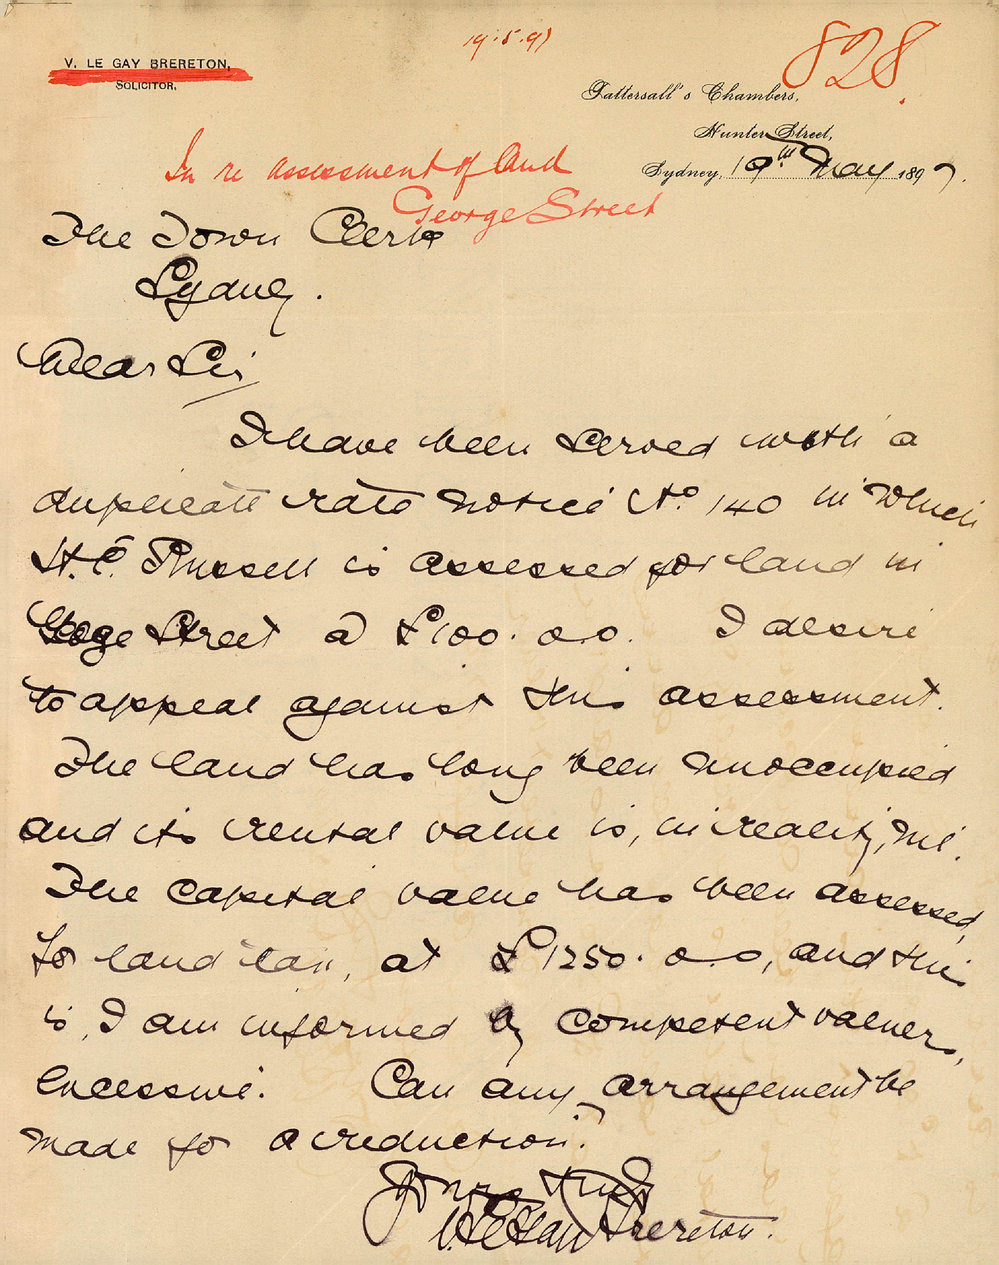 19.5.97
828.
V. LE GAY BRERETON,
SOLICITOR.
Tattersall's Chambers,
Hunter Street,
Sydney, 19th May 1897.
In re assessment of land
George Street
The Town Clerk
Sydney.
Dear Sir
I have been served with a
duplicate rate notice No. 140 in which
H.C. Russell is assessed for land in
George Street @ £100.0.0. I desire
to appeal against this assessment.
The land has long been unoccupied
and its rental value is, in reality, nil.
The capital value has been assessed,
for land tax, at £1250.0.0, and this
is, I am informed by competent valuers,
excessive. Can any arrangement be
made for a reduction?
Yours truly
V. Le Gay Brereton.